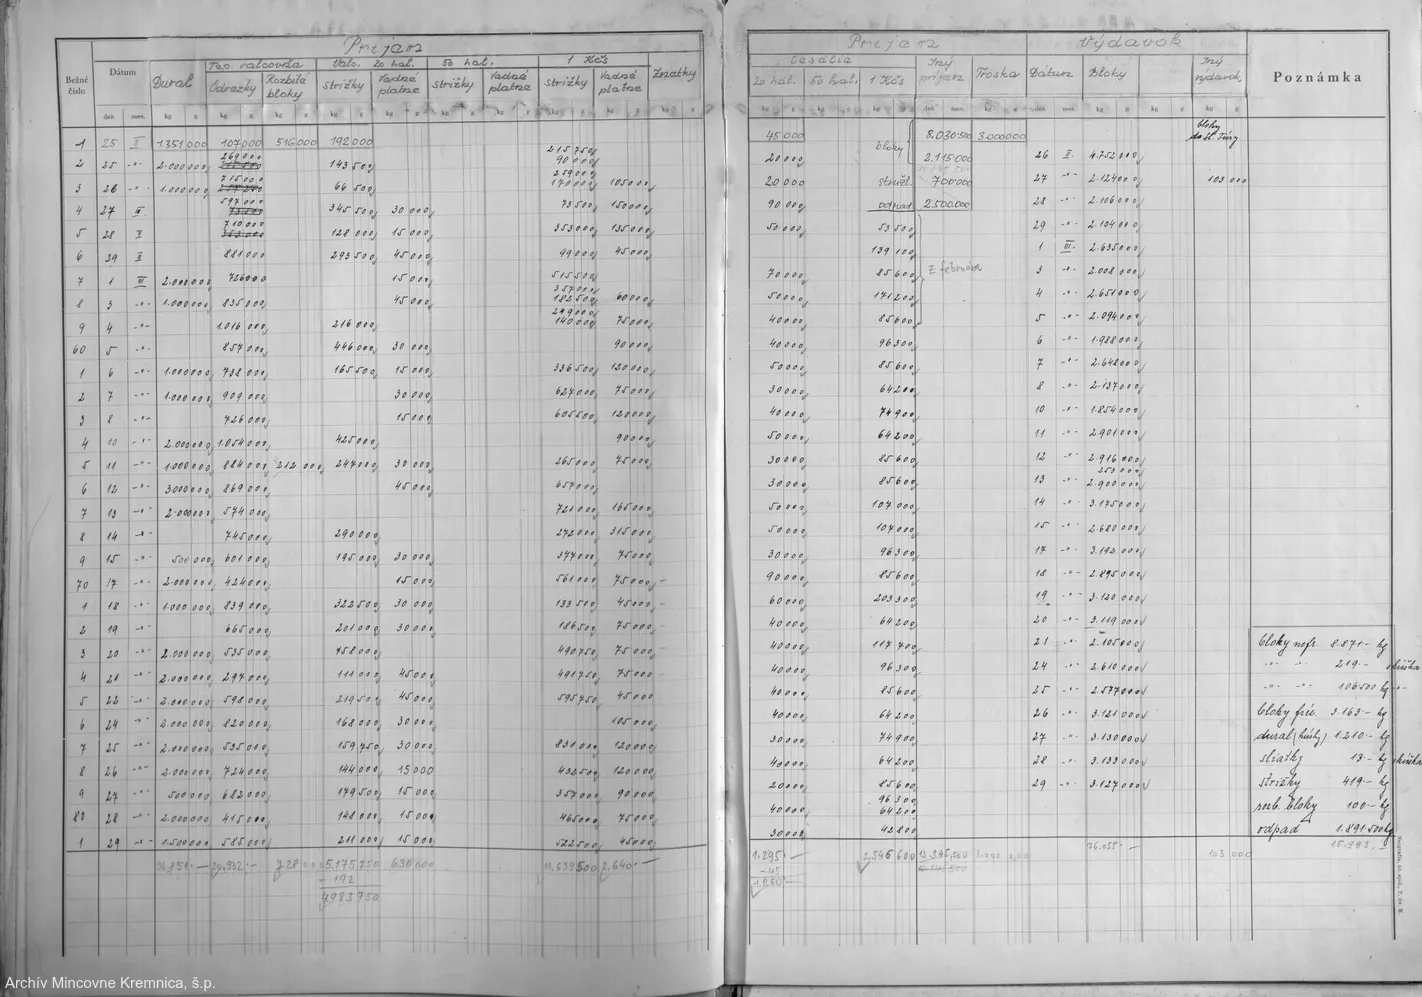 Príjem
Príjem
Výdavok
Bežné číslo
Dátum
Dural
Tep. valcovňa
Valc. 20 hal.
50 hal.
1 Kčs
Zmetky
Odrezky
Rozbité bloky
Strižky
Vadné platne
Strižky
Vadné platne
Strižky
Vadné platne
20 hal.
50 hal.
1 Kčs
Iný príjem
Troska
Dátum
Bloky
Iný výdavok
Poznámka
deň mes. kg g kg g kg g kg g kg g kg g kg g kg g kg g kg g
1 25 II 1.351 000 107 000 516 000 192 000
45 000 bloky 8.030 500 3.000 000 bloky do Št. Túry
2 25 -"- 2.000 000 269 000 143 500 215 750 90 000
20 000 2.115 000 26 II. 4.752 000
3 26 -"- 1.000 000 715 000 66 500 259 000 140 000 105 000
20 000 700 000 27 -"- 2.124 000 103 000
4 27 597 000 345 500 30 000 73 500 150 000
90 000 odpad 2.500.000 28 -"- 2.106 000
5 28 II 710 000 128 000 15 000 353 000 135 000
50 000 53 500 29 -"- 2.104 000
6 29 II 881 000 293 500 45 000 99 000 45 000
139 100 1 III. 2.635 000
7 1 III 2.000 000 726 000 15 000 515 500
70 000 85 600 z februára 3 -"- 2.008 000
8 3 -"- 1.000 000 835 000 45 000 357 000 182 500 60 000
50 000 171 200 4 -"- 2.651 000
9 4 -"- 1.016 000 216 000 249 000 140 000 75 000
40 000 85 600 5 -"- 2.094 000
60 5 -"- 857 000 446 000 30 000 90 000
40 000 96 300 6 -"- 1.988 000
1 6 -"- 1.000 000 738 000 165 500 15 000 336 500 120 000
50 000 85 600 7 -"- 2.648 000
2 7 -"- 1.000 000 909 000 30 000 627 000 75 000
30 000 64 200 8 -"- 2.137 000
3 8 -"- 726 000 15 000 605 500 120 000
40 000 74 900 10 -"- 1.854 000
4 10 -"- 2.000 000 1.054 000 425 000 90 000
50 000 64 200 11 -"- 2.901 000
5 11 -"- 1.000 000 884 000 212 000 247 000 30 000 265 000 75 000
30 000 85 600 12 -"- 2.916 000
6 12 -"- 3.000 000 869 000 45 000 657 000
30 000 85 600 13 -"- 253 000 2.900 000
7 13 -"- 2.000 000 574 000 721 000 165 000
50 000 107 000 14 -"- 3.175 000
8 14 -"- 745 000 290 000 272 000 315 000
50 000 107 000 15 -"- 2.680 000
9 15 -"- 500 000 601 000 195 000 30 000 377 000 75 000
30 000 96 300 17 -"- 3.192 000
70 17 -"- 2.000 000 424 000 15 000 561 000 75 000
90 000 85 600 18 -"- 2.895 000
1 18 -"- 1.000 000 839 000 322 500 30 000 133 500 45 000
60 000 203 300 19 -"- 3.120 000
2 19 -"- 665 000 201 000 30 000 186 500 75 000
40 000 64 200 20 -"- 3.119 000
3 20 -"- 2.000 000 535 000 758 000 490 750 75 000
40 000 117 700 21 -"- 2.105 000 bloky nefr. 8.871.- kg
4 21 -"- 2.000 000 297 000 111 000 45 000 491 750 75 000
40 000 96 300 24 -"- 2.610 000 -"- -"- 219.-
5 22 -"- 2.000 000 598 000 219 500 45 000 595 750 45 000
40 000 85 600 25 -"- 2.577 000 -"- -"- 106 500 kg -"-
6 24 -"- 2.000 000 820 000 168 000 30 000 105 000
40 000 64 200 26 -"- 3.121 000 bloky fréz. 3.163.- kg
7 25 -"- 2.000 000 535 000 159 750 30 000 831 000 120 000
30 000 74 900 27 -"- 3.130 000 dural 1.210.- kg
8 26 -"- 2.000 000 724 000 144 000 15 000 432 500 120 000
40 000 64 200 28 -"- 3.133 000 13.- kg
9 27 -"- 500 000 682 000 179 500 15 000 357 000 90 000
20 000 85 600 29 -"- 3.127 000 strižky 419.- kg
80 28 -"- 2.000 000 415 000 148 000 15 000 465 000 75 000
40 000 96 300 64 200 rozb. bloky 100.- kg
1 29 -"- 1.500 000 585 000 211 000 15 000 522 500 45 000
30 000 42 800 odpad 1.891.500 kg
36.851.- 728 000 5.175 750 630 000 11.639 500 2.640.-
- 192
4983 750
1.295.- 2.546 600 76.055.- 103 000
- 45
1.250.-
Archív Mincovne Kremnica, š.p.